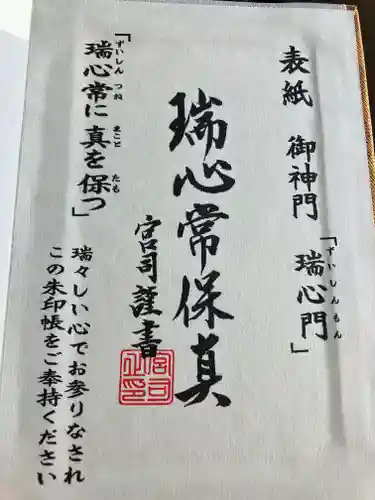 表紙 御神門「瑞心門」
ずいしんもん
瑞心常保真
宮司謹書
宮司之印
「瑞心常に 真を保つ」
ずいしん つね まこと たも
瑞々しい心でお参りなされ
この朱印帳をご奉持ください